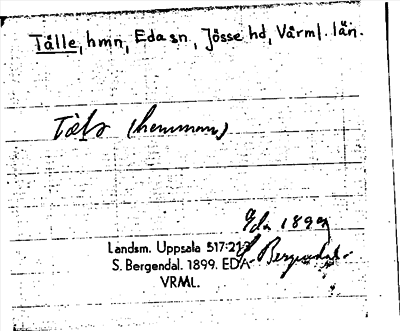 Tålle, hmn, Eda sn., Jösse hd, Värml. län.
(hemman)
Eda 1899
Landsm. Uppsala 517:21
S. Bergendal.
S. Bergendal. 1899. EDA
VRML.